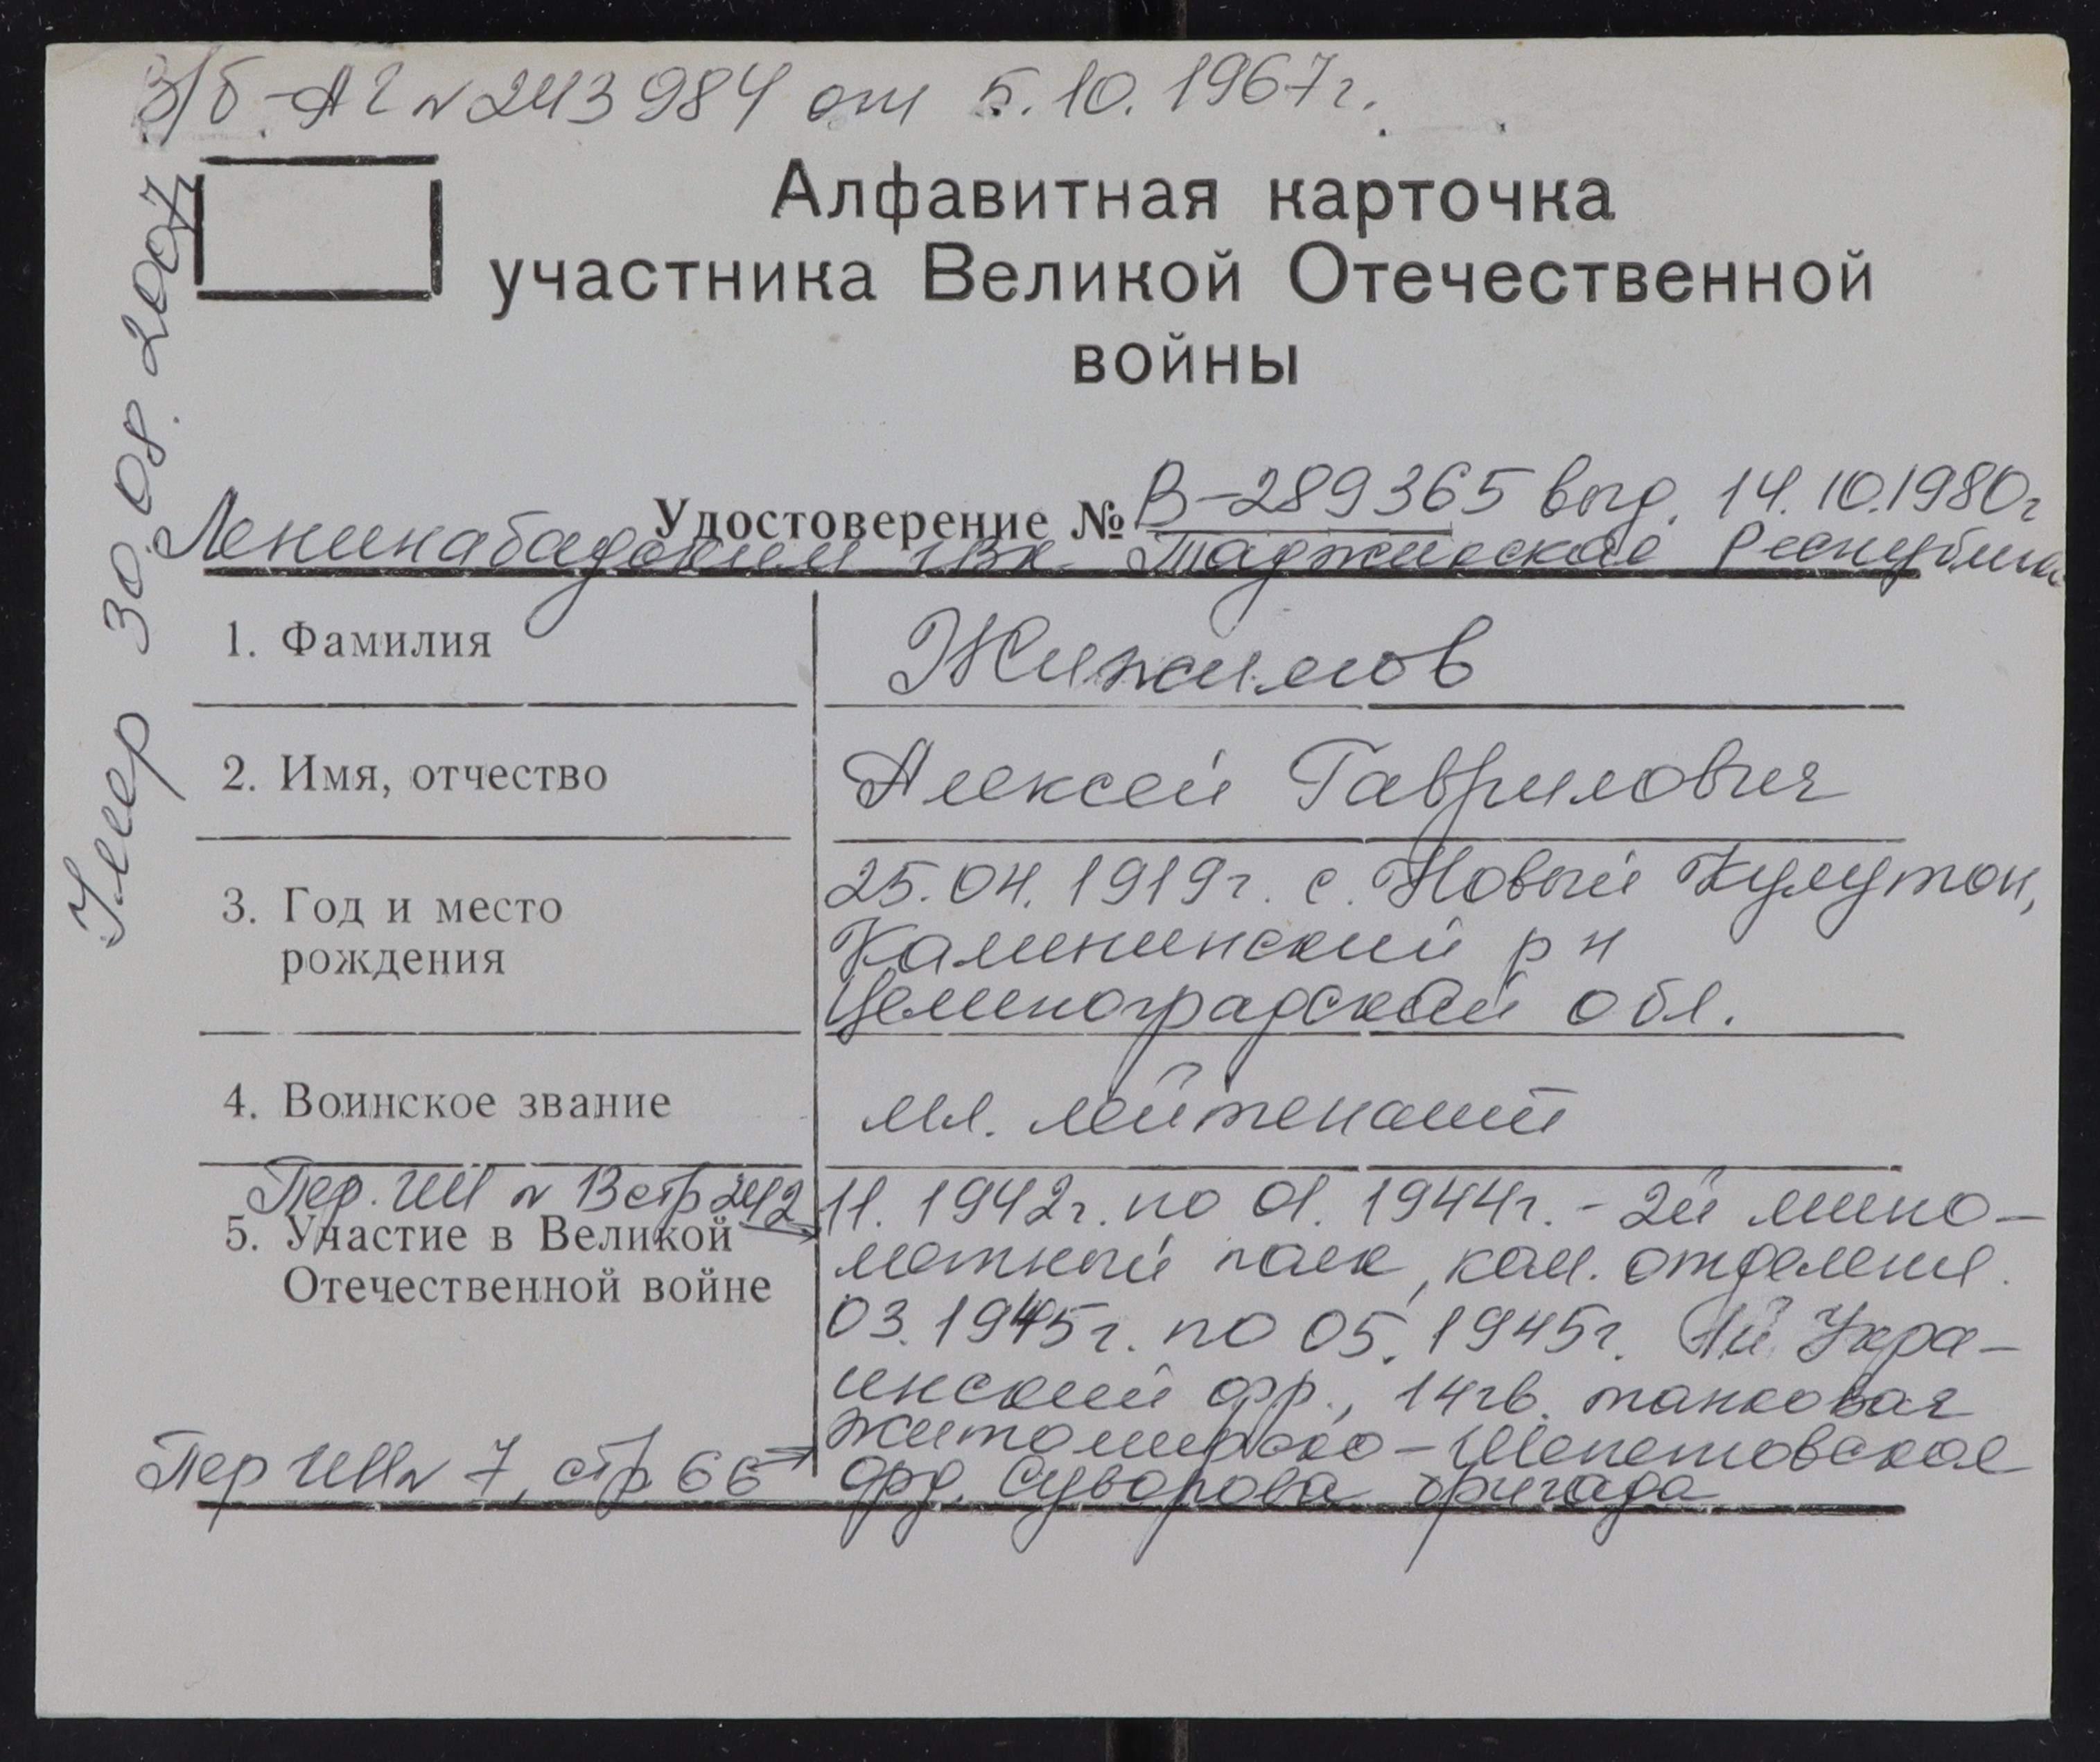 В/б АГ № 243984 от 5.10.1967г.
Алфавитная карточка
участника Великой Отечественной
войны
Умер 30.08.2007
Удостоверение № В-289365 выд. 14.10.1980г
Ленинабадским гвк Таджикская Республика
1. Фамилия
Жижимов
2. Имя, отчество
Алексей Гаврилович
3. Год и место
рождения
25.04.1919г. с. Новый Кулутон,
Калининский р н
Целиноградской обл.
4. Воинское звание
мл. лейтенант
Пер. ИМ № 13 стр 242
5. Участие в Великой
Отечественной войне
11.1942г. по 01.1944г. - 2й мино-
метный полк, ком. отделения.
03.1945г. по 05.1945г. 1й Укра-
инский фр., 14 гв. танковая
Житомирско-Шепетовская
орд. Суворова бригада
Пер ИМ № 7, стр. 66